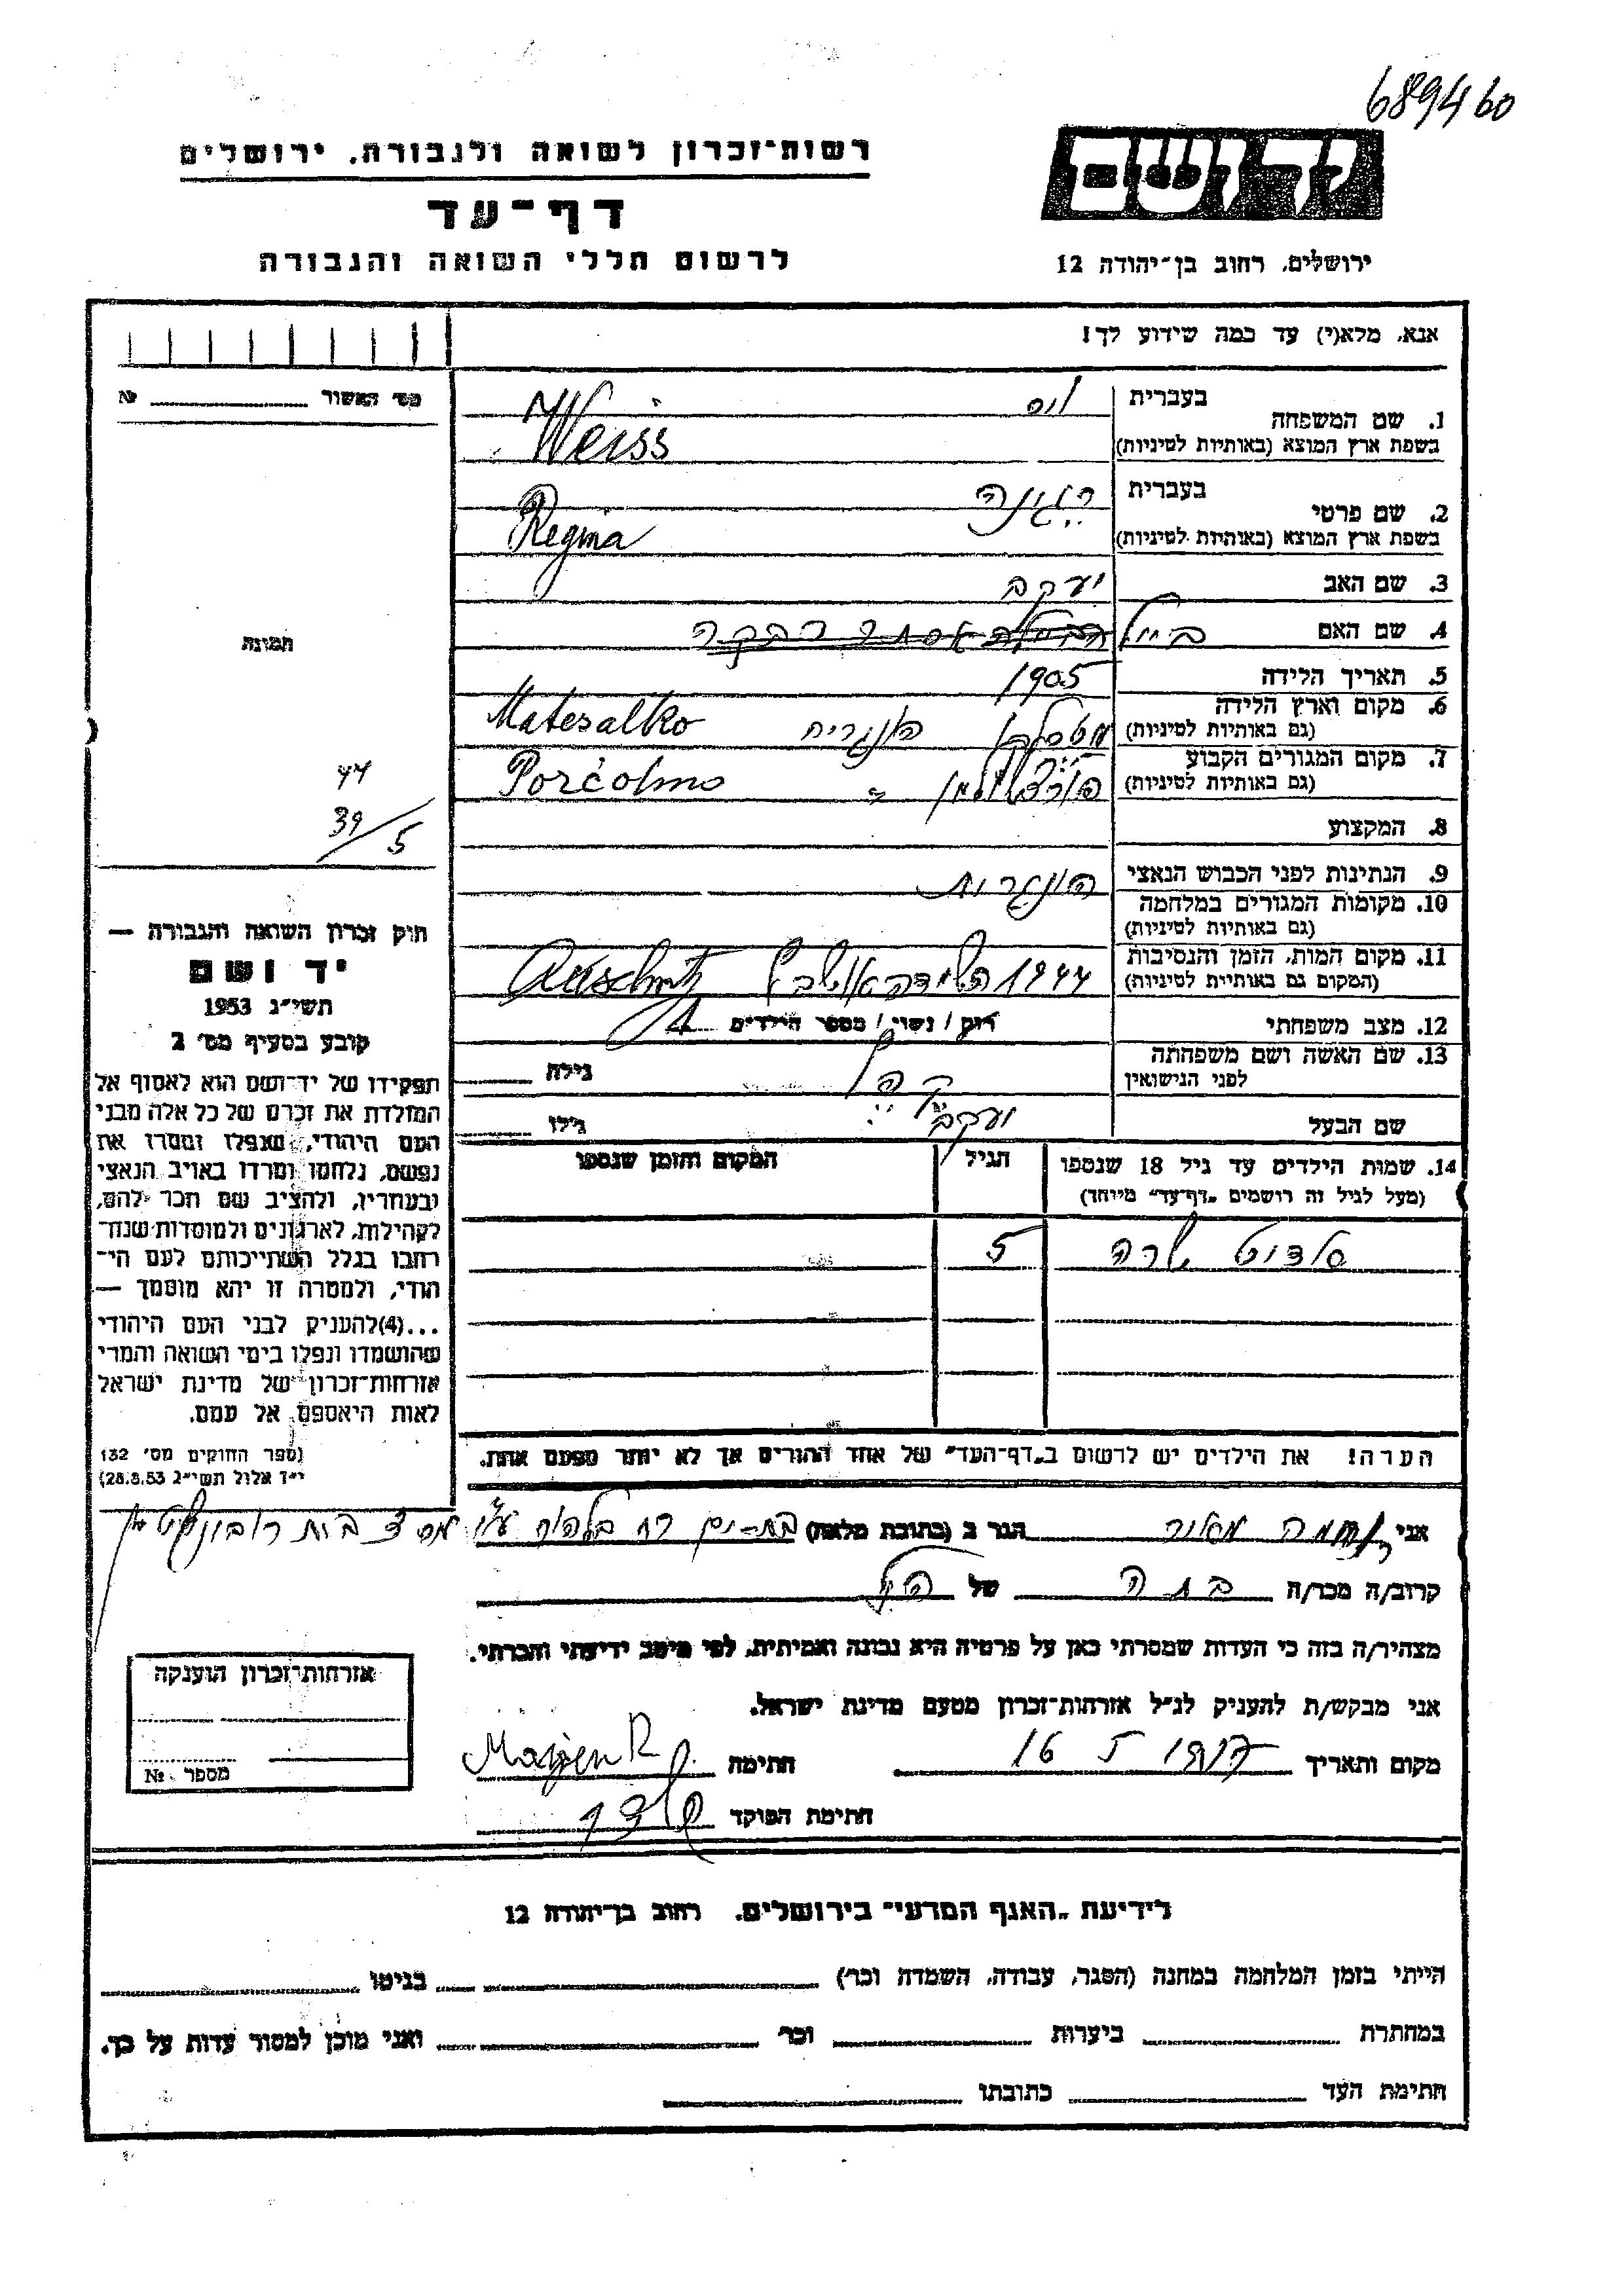 689460
רשות־זכרון לשואה ולגבורה, ירושלים
יד ושם
דף־עד
לרשום חללי השואה והגבורה
ירושלים, רחוב בן־יהודה 12
אנא, מלא(י) עד כמה שידוע לך!
מס׳ האשור № 
1. שם המשפחה בעברית וייס
בשפת ארץ המוצא (באותיות לטיניות) Weiss
2. שם פרטי בעברית רגינה
בשפת ארץ המוצא (באותיות לטיניות) Regina
3. שם האב יעקב
4. שם האם בייל אסתר רבקה
תמונה
5. תאריך הלידה 1905
6. מקום וארץ הלידה (גם באותיות לטיניות) הונגריה Matesalko
7. מקום המגורים הקבוע (גם באותיות לטיניות) " Porčolmo
44
39/5
8. המקצוע
9. הנתינות לפני הכבוש הנאצי הונגרית
10. מקומות המגורים במלחמה (גם באותיות לטיניות)
11. מקום המות, הזמן והנסיבות (המקום גם באותיות לטיניות) 1944 Auschwitz
12. מצב משפחתי רווק / נשוי / מספר הילדים
13. שם האשה ושם משפחתה לפני הנישואין גילה
שם הבעל יעקב גילו
14. שמות הילדים עד גיל 18 שנספו הגיל המקום והזמן שנספו
(מעל לגיל זה רושמים „דף־עד” מיוחד)
שרה 5
חוק זכרון השואה והגבורה —
יד ושם
תשי״ג 1953
קובע בסעיף מס׳ 2
תפקידו של יד־ושם הוא לאסוף אל
המולדת את זכרם של כל אלה מבני
העם היהודי, שנפלו ומסרו את
נפשם, נלחמו ומרדו באויב הנאצי
ובעוזריו, ולהציב שם וזכר להם,
לקהילות, לארגונים ולמוסדות שנח־
רבו בגלל השתייכותם לעם הי־
הודי, ולמטרה זו יהא מוסמך —
...(4)להעניק לבני העם היהודי
שהושמדו ונפלו בימי השואה והמרי
אזרחות־זכרון של מדינת ישראל
לאות היאספם אל עמם.
(ספר החוקים מס׳ 132
י״ז אלול תשי״ג 28.8.53)
הערה! את הילדים יש לרשום ב„דף־העד” של אחד ההורים אך לא יותר מפעם אחת.
אני נחמה מאור הגר ב (כתובת מלאה) בת-ים
קרוב/ה מכר/ה בתה של הנ״ל
מצהיר/ה בזה כי העדות שמסרתי כאן על פרטיה היא נכונה ואמיתית, לפי מיטב ידיעתי והכרתי.
אני מבקש/ת להעניק לנ״ל אזרחות־זכרון מטעם מדינת ישראל.
מקום ותאריך 16 חתימה
חתימת הפוקד
אזרחות־זכרון הוענקה
מספר №
לידיעת „האגף המדעי” בירושלים, רחוב בן־יהודה 12
הייתי בזמן המלחמה במחנה (הסגר, עבודה, השמדה וכו׳) בגיטו
במחתרת ביערות וכו׳ ואני מוכן למסור עדות על כך.
חתימת העד כתובתו